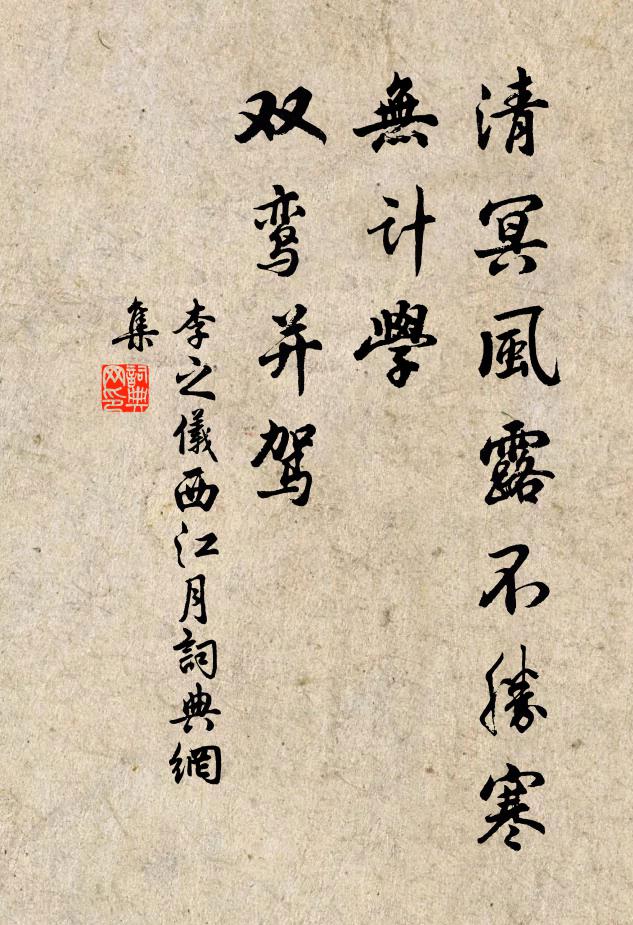 清冥風露不勝寒
無计學
双鸾并驾
李之儀西江月詞典網
集
詞典
网印